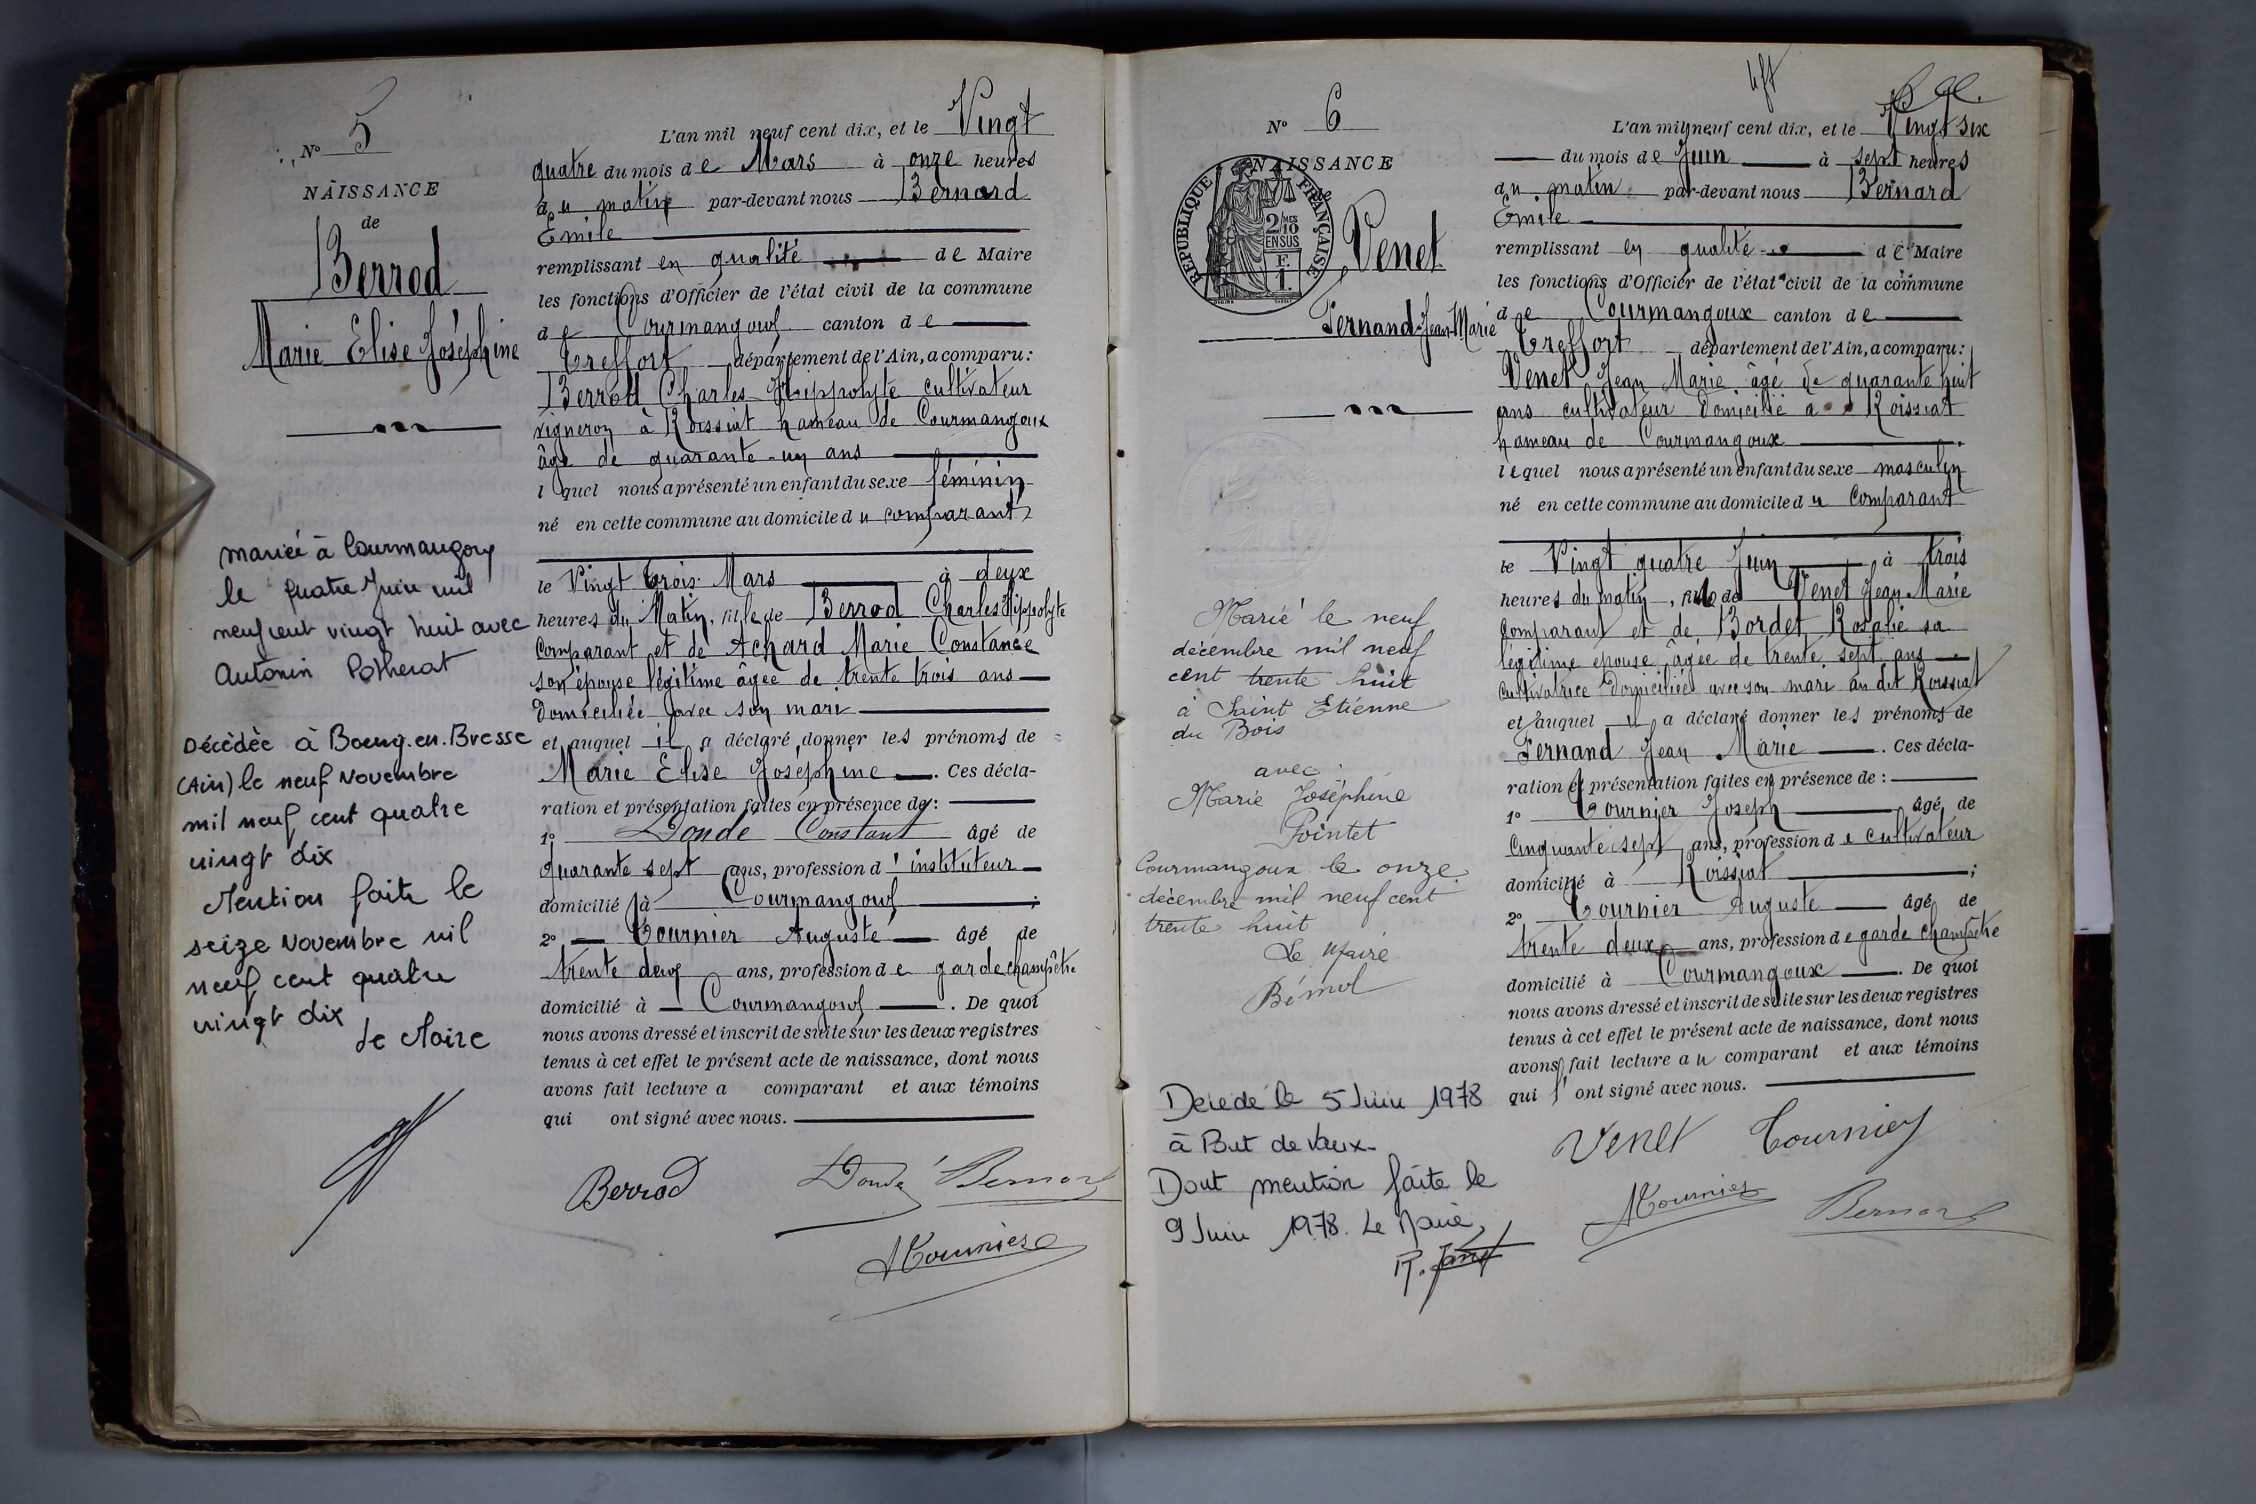 N° 5
NAISSANCE
de
Berrod
Marie Elise Joséphine
mariée à Courmangoux
le quatre Juin mil
neuf cent vingt huit avec
Antonin Potherat
Décédée à Bourg.en.Bresse
(Ain) le neuf Novembre
mil neuf cent quatre
vingt dix
Mention faite le
seize Novembre mil
neuf cent quatre
vingt dix
Le Maire
L'an mil neuf cent dix, et le Vingt
quatre du mois de Mars à onze heures
du matin par-devant nous Bernard
Emile
remplissant en qualité de Maire
les fonctions d'Officier de l'état civil de la commune
de Courmangoux canton de
Treffort département de l'Ain, a comparu:
Berrod Charles Hippolyte cultivateur
vigneron à Roissiat hameau de Courmangoux
âgé de quarante-un ans
l quel nous a présenté un enfant du sexe féminin
né en cette commune au domicile du comparant
le Vingt trois Mars à deux
heures du Matin, fille de Berrod Charles Hippolyte
comparant et de Achard Marie Constance
son épouse légitime âgée de trente trois ans
domiciliée avec son mari
et auquel il a déclaré donner les prénoms de
Marie Elise Joséphine. Ces décla-
ration et présentation faites en présence de:
1° Dondé Constant âgé de
quarante sept ans, profession d'instituteur
domicilié à Courmangoux;
2° Tournier Auguste âgé de
trente deux ans, profession de garde champêtre
domicilié à Courmangoux. De quoi
nous avons dressé et inscrit de suite sur les deux registres
tenus à cet effet le présent acte de naissance, dont nous
avons fait lecture a comparant et aux témoins
qui ont signé avec nous.
Berrod Dondé Bernard
A Tournier
N° 6
NAISSANCE
RÉPUBLIQUE FRANÇAISE
2/10 MES
EN SUS
F.
1.
Venet
Fernand Jean Marie
Marié le neuf
décembre mil neuf
cent trente huit
à Saint Etienne
du Bois
avec
Marie Joséphine
Pointet
Courmangoux le onze
décembre mil neuf cent
trente huit
Le Maire
Décédé le 5 Juin 1978
à But de Vaux.
Dont mention faite le
9 Juin 1978. Le Maire,
L'an mil neuf cent dix, et le Vingt six
du mois de Juin à sept heures
du matin par-devant nous Bernard
Emile
remplissant en qualité de Maire
les fonctions d'Officier de l'état civil de la commune
de Courmangoux canton de
Treffort département de l'Ain, a comparu:
Venet Jean Marie âgé de quarante huit
ans cultivateur domicilié à Roissiat
hameau de Courmangoux
lequel nous a présenté un enfant du sexe masculin
né en cette commune au domicile du comparant
le Vingt quatre Juin à trois
heures du matin, fils de Venet Jean Marie
comparant et de Bordet Rosalie sa
légitime épouse âgée de trente sept ans
cultivatrice domiciliée avec son mari au dit Roissiat
et auquel il a déclaré donner les prénoms de
Fernand Jean Marie. Ces décla-
ration et présentation faites en présence de:
1° Tournier Joseph âgé de
cinquante sept ans, profession de cultivateur
domicilié à Roissiat;
2° Tournier Auguste âgé de
trente deux ans, profession de garde champêtre
domicilié à Courmangoux. De quoi
nous avons dressé et inscrit de suite sur les deux registres
tenus à cet effet le présent acte de naissance, dont nous
avons fait lecture au comparant et aux témoins
qui l'ont signé avec nous.
Venet Tournier
A Tournier Bernard